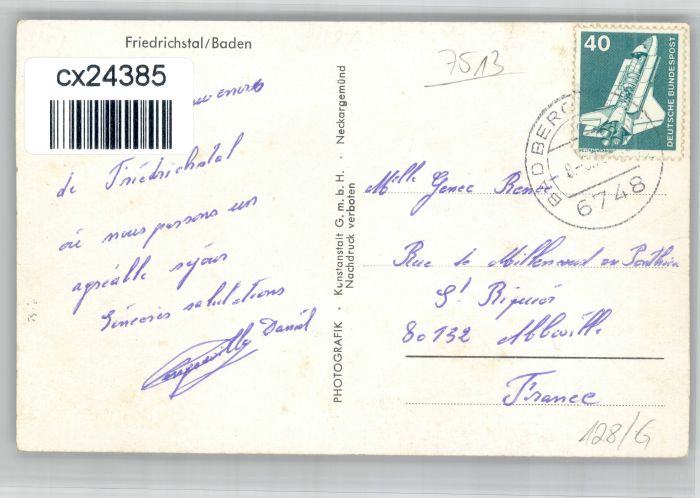 Friedrichstal/Baden
cx24385
de Friedrichstal
où nous passons un
agréable séjour
Sincères salutations
Daniel
PHOTOGRAFIK · Kunstanstalt G.m.b.H. · Neckargemünd
Nachdruck verboten
7513
40
DEUTSCHE BUNDESPOST
BAD BERG
6748
Melle Genec René
Rue de Millencourt en Ponthieu
St Riquier
80132 Abbeville
France
128/G